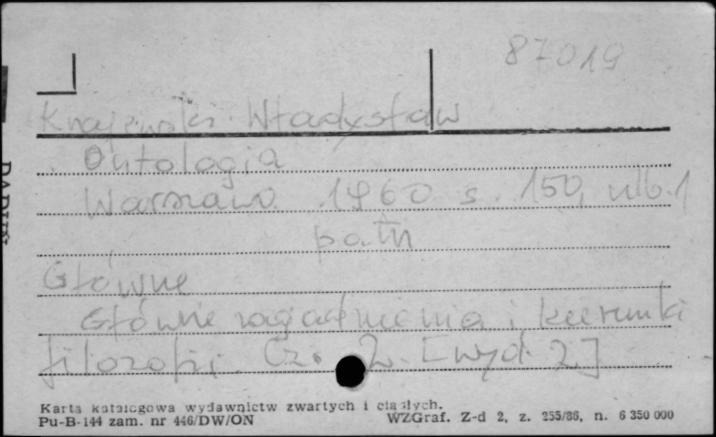 87019
Krajewski Władysław
Ontologia
Warszawa 1960 s. 150, nlb. 1
patrz
Główne
Główne zagadnienia i kierunki
filozofii. Cz. 2. [wyd. 2]
Karta katalogowa wydawnictw zwartych i ciągłych.
Pu-B-144 zam. nr 446/DW/ON WZGraf. Z-d 2, z. 255/86, n. 6 350 000